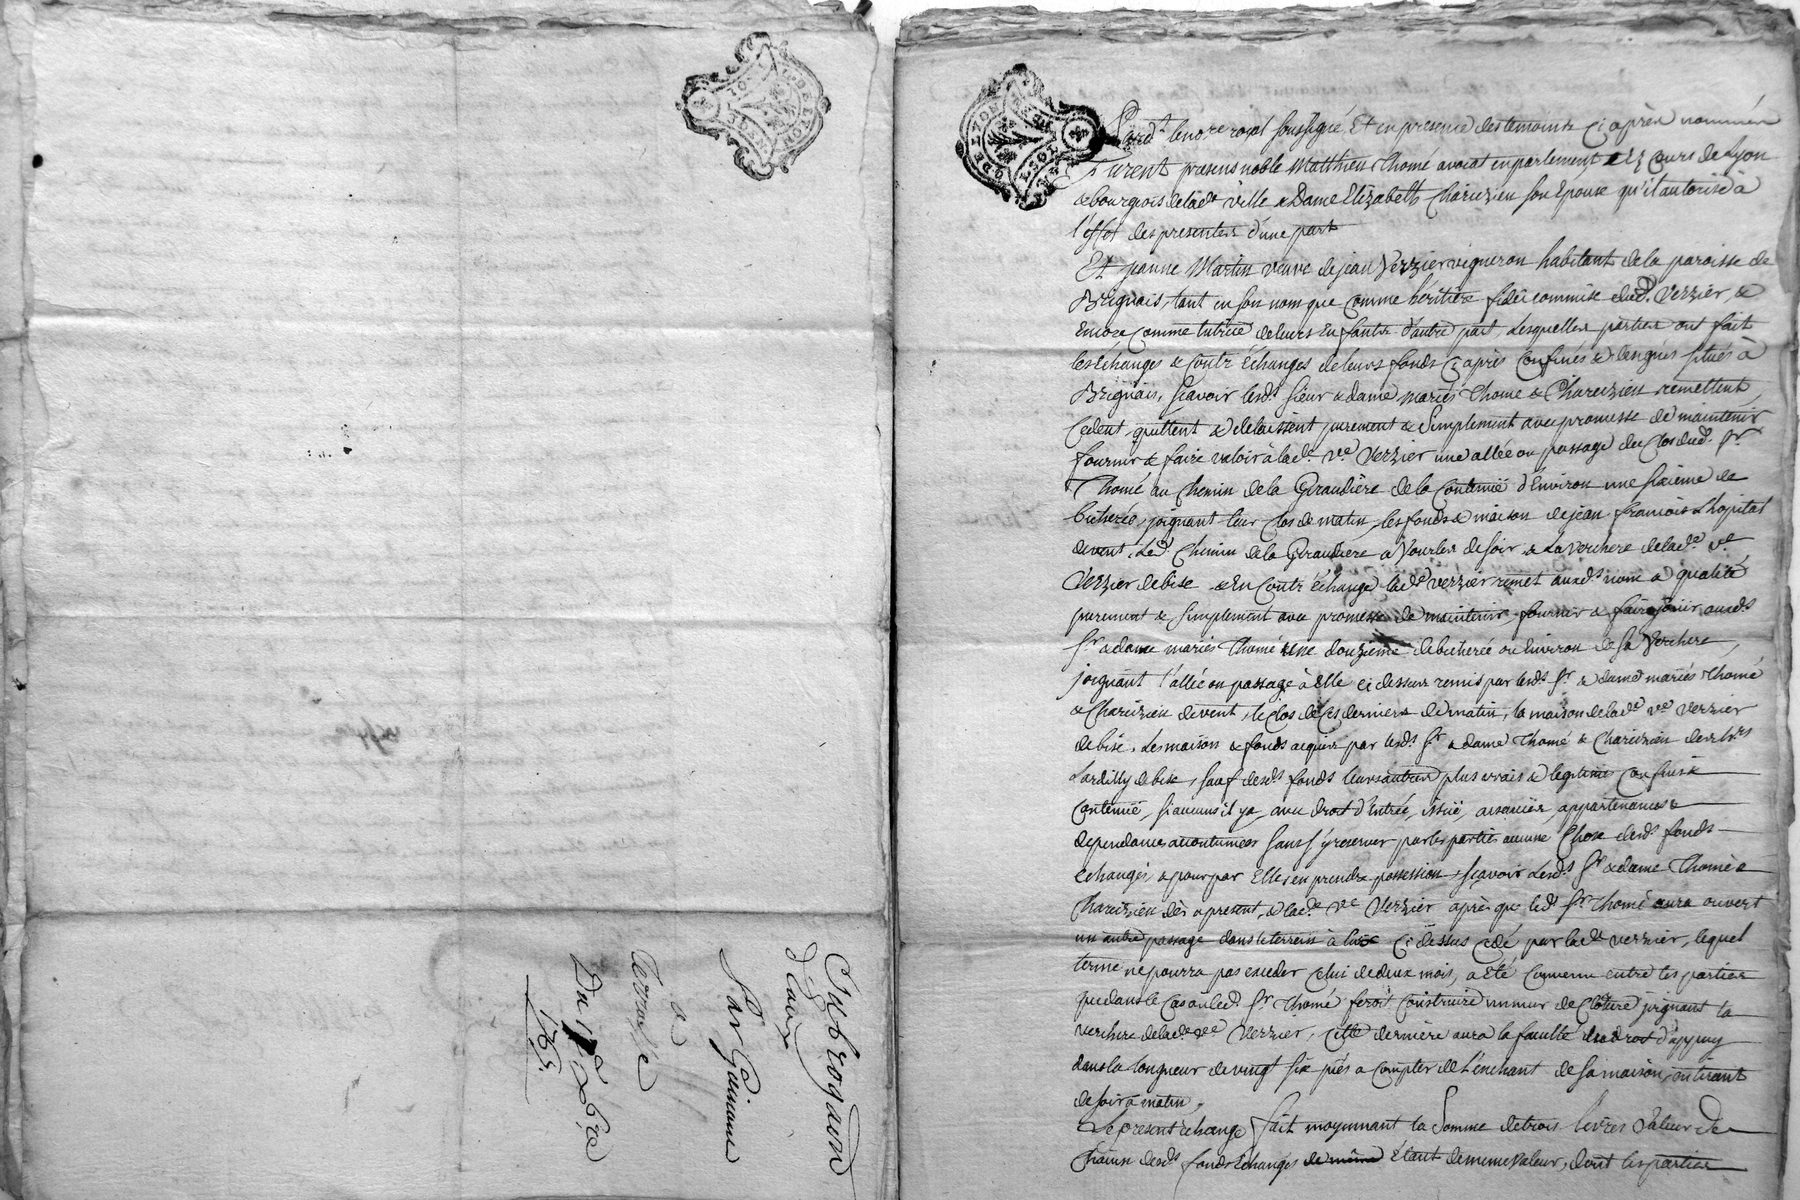 Subrogaõn
d'eaux
Par Guinand
a
Du 17 xbre
1763
Pardt. le nore royal soussigné, Et en presence des temoins Ci après nommés
furent presens noble Matthieu Thomé avocat en parlement, & Ez Cours de Lyon
& bourgeois de lade ville & Dame Elizabeth Charezieu son Epouse qu'il autorise à
l'effet des presentes d'une part
Et jeanne Martin veuve de jean Verzier vigneron habitant de la paroisse de
Brignais, tant en son nom que Comme héritière fidei commise dud. Verzier, &
Encore Comme tutrice de leurs Enfants d'autre part, Lesquelles parties ont fait
les Echanges & Contr'Echanges de leurs fonds Ci après Confinés & designés situés à
Brignais, sçavoir lesds sieur & dame mariés Thomé & Charezieu remettent,
Cedent, quittent & delaissent purement & Simplement avec promesse de maintenir
fournir & faire valoir à lade. ve. Verzier une allée ou passage du Clos dud. Sr.
Thomé au Chemin de la Giraudière de la Contenuë d'Environ une sixieme de
bicherée, joignant leur Clos de matin, les fonds & maison de jean françois Lhopital
de vent, Led. Chemin de la Giraudière à Vourles de soir & La verchere de lade. ve
Verzier de bise & En Contr'échange lade verzier remet auxds nom & qualité
purement & simplement avec promesse de maintenir, fournir & faire joüir auxds
Sr. & dame mariés Thomé une douzieme de bicherée ou Environ de sa Verchere,
joignant l'allée ou passage à Elle ci dessus remis par lesds. Sr & dame mariés Thomé
& Charezieu de vent, le Clos de Ces derniers de matin, la maison de lade ve Verzier
de bise, Les maison & fonds acquis par lesds. Sr & dame Thomé & Charezieu des hrs
Lardilly de bise, sauf desds fonds leurs autres plus vrais & legitimes Confins &
Contenuë, si aucuns il y a, avec droit d'Entrée, issuë, aisances, appartenances &
dependances accoutumées sans s'y reserver par les parties aucune Chose desds fonds
Echangés, & pour par Elles en prendre possession, sçavoir Lesds. Sr & dame Thomé &
Charezieu dès à present, & lade. Ve Verzier après que led. Sr Thomé aura ouvert
un autre passage dans le terrein à lui Ci dessus Cédé par lade verzier, lequel
terme ne pourra pas exceder Celui de deux mois, a Eté Convenu entre les parties
que dans le Cas où led. Sr. Thomé feroit Construire un mur de Cloture joignant la
verchere de lade ve Verzier, Cette derniere aura la faculté & le droit d'appuy
dans la longueur de vingt six piés a Compter de L'enchant de sa maison, en tirant
de soir à matin,
Le present echange fait moyennant la Somme de trois livres Valeur de
Chacun desds fonds Echangés Etant de meme valeur, dont les parties